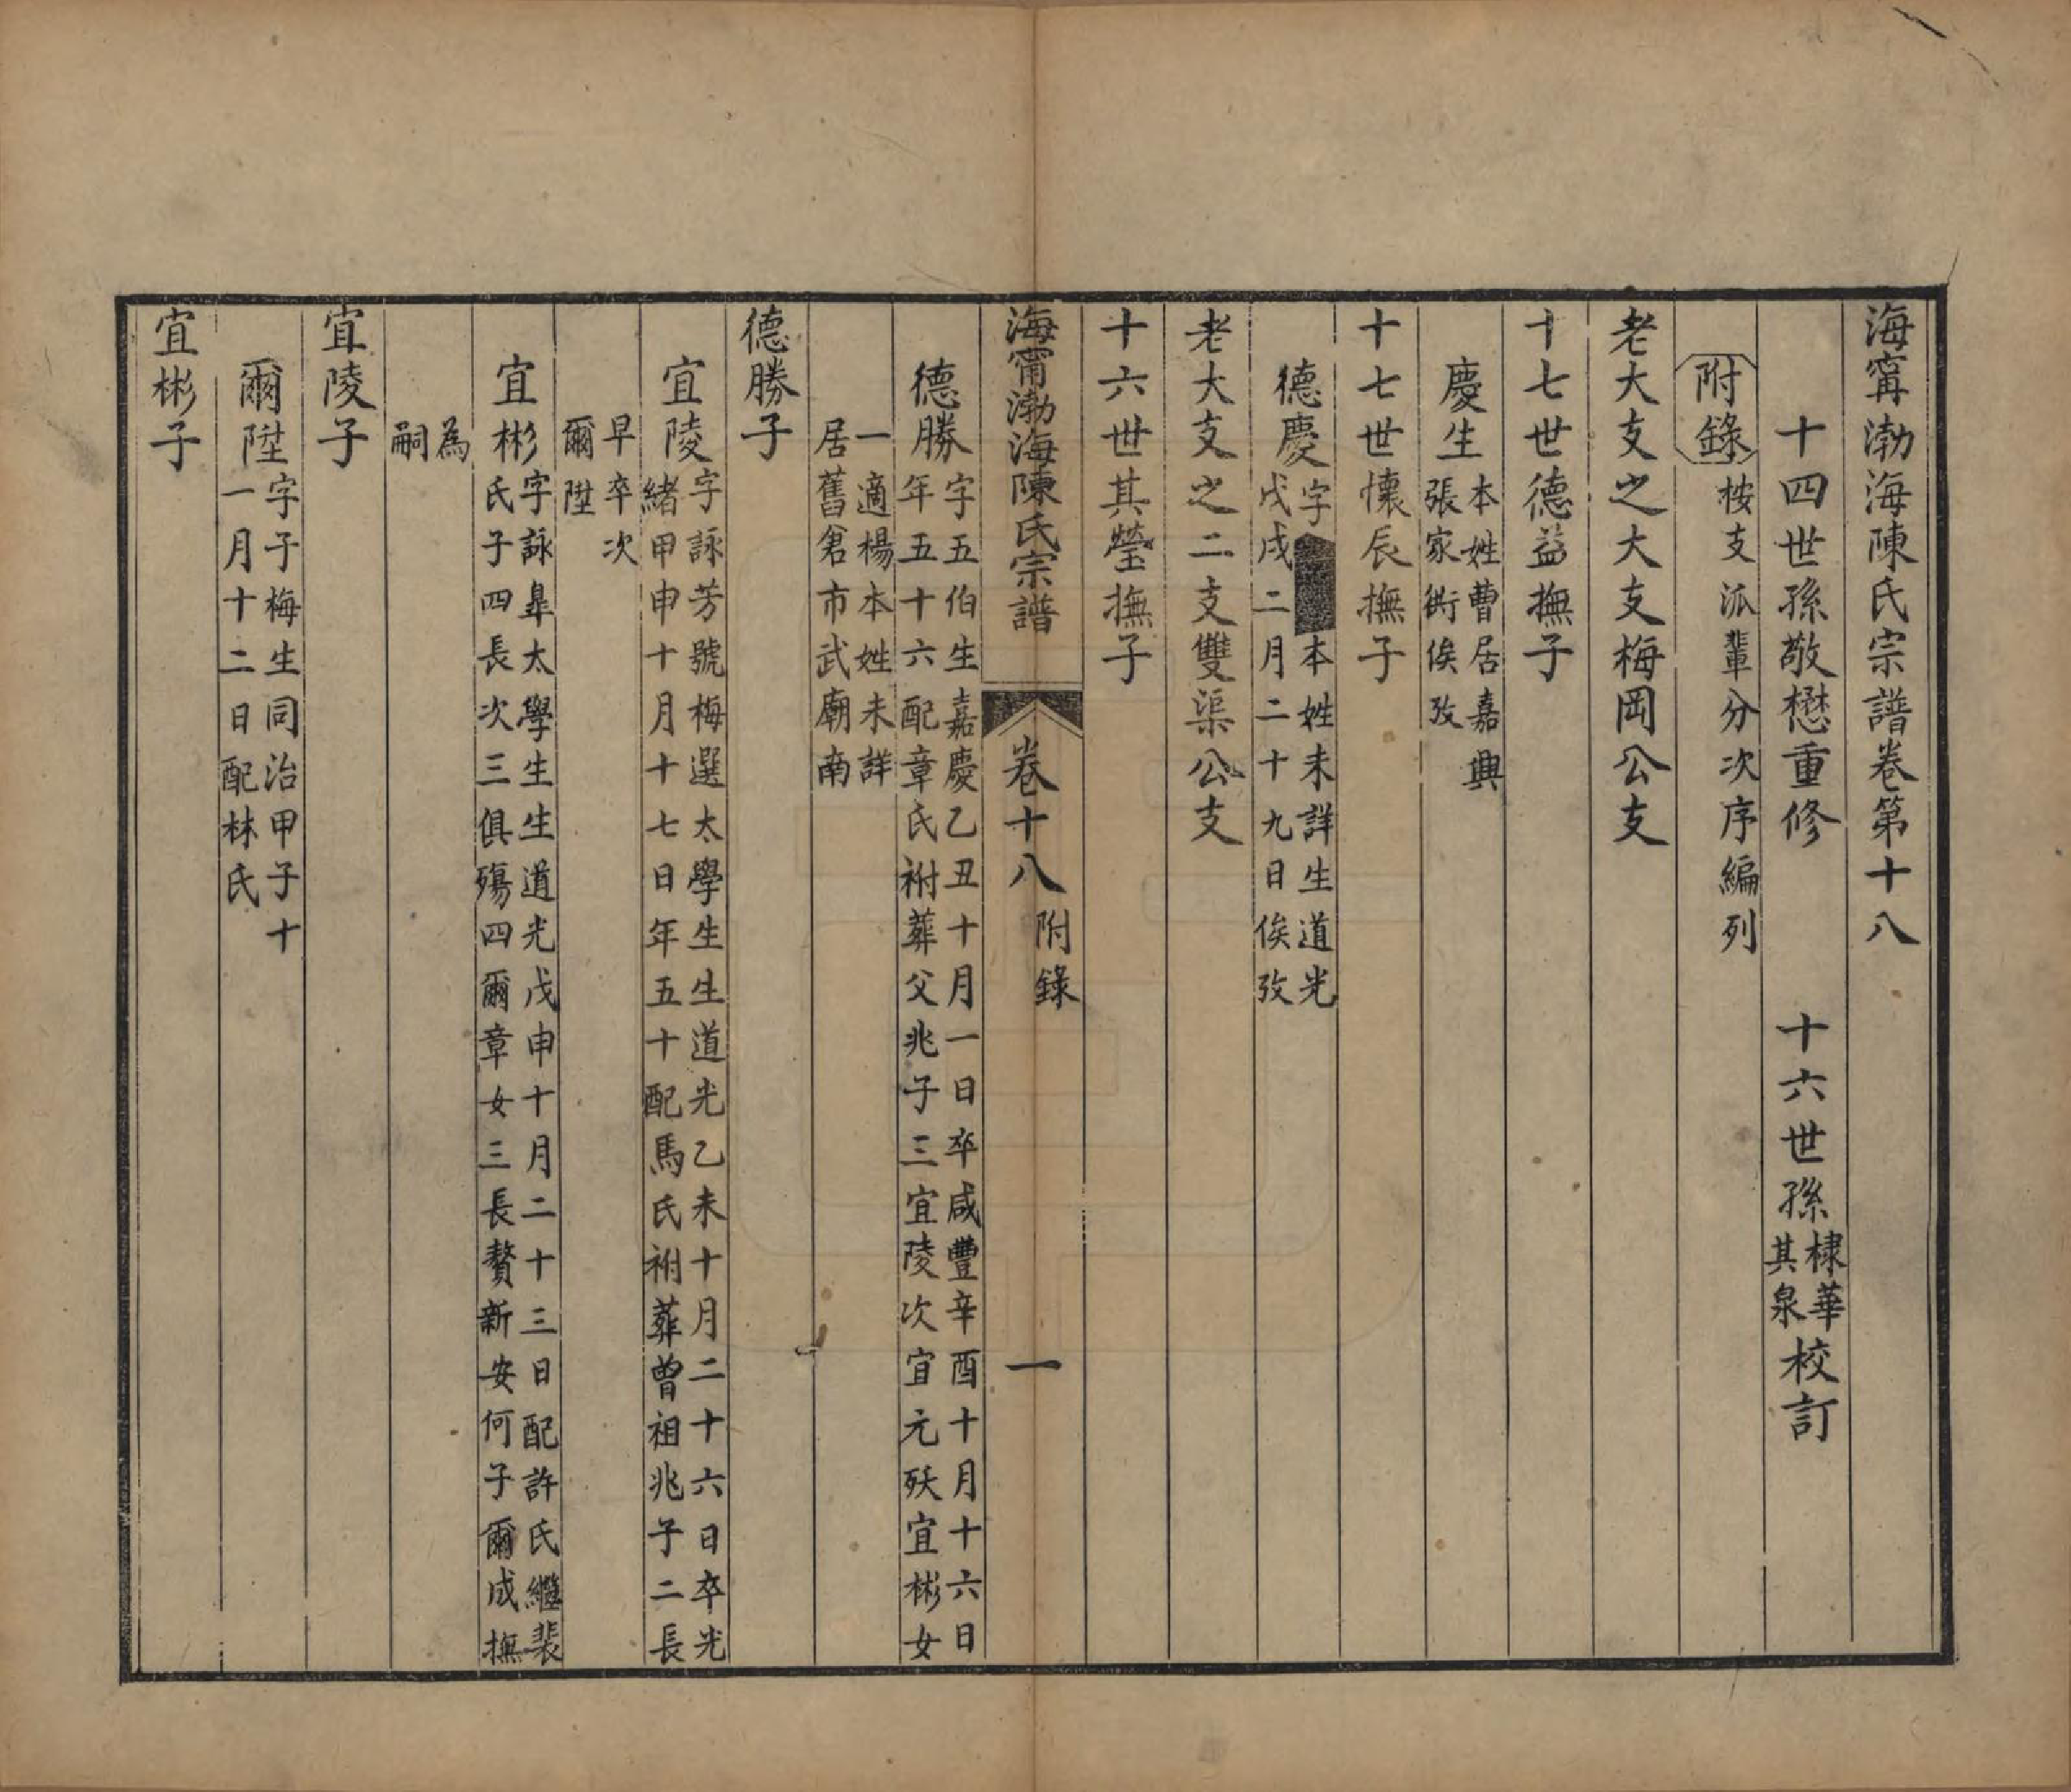 海寗渤海陳氏宗譜卷第十八
十四世孫敬懋重修　十六世孫棣華其泉校訂
附錄　桉支派輩分次序編列
老大支之大支梅岡公支
十七世德益撫子
慶生　本姓曹居嘉興
張家衖俟攷
十七世懷辰撫子
德慶　字　本姓未詳生道光
戊戌二月二十九日俟攷
老大支之二支雙渠公支
十六世其瑩撫子
海甯渤海陳氏宗譜　卷十八　附錄　一
德勝　字五伯生嘉慶乙丑十月一日卒咸豐辛酉十月十六日
年五十六配章氏祔葬父兆子三宜陵次宜元殀宜彬女
一適楊本姓未詳
居舊倉市武廟南
德勝子
宜陵　字詠芳號梅選太學生生道光乙未十月二十六日卒光
緒甲申十月十七日年五十配馬氏祔葬曾祖兆子二長
早卒次
爾陞
宜彬　字詠臯太學生生道光戊申十月二十三日配許氏繼裴
氏子四長次三俱殤四爾章女三長贅新安何子爾成撫
為
嗣
宜陵子
爾陞　字子梅生同治甲子十
一月十二日配林氏
宜彬子